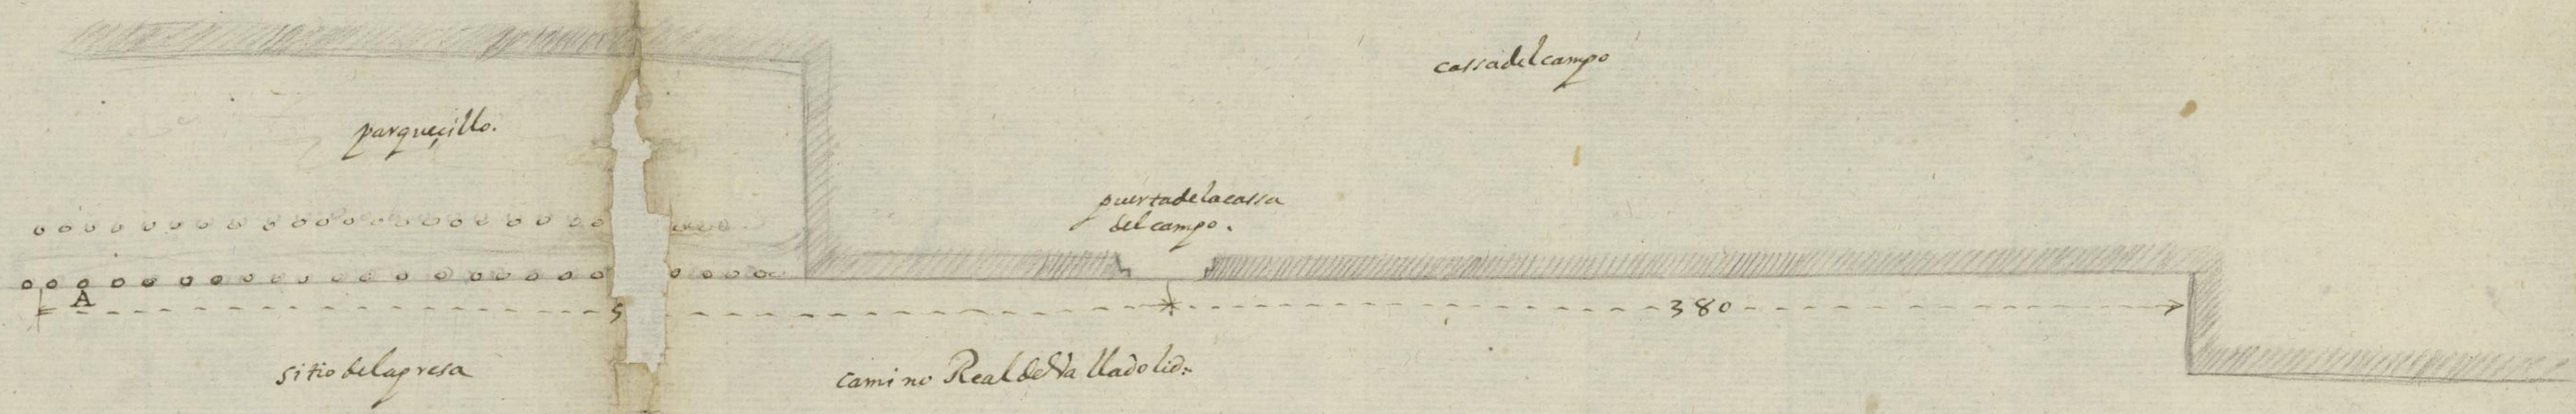 cassa del campo
parqueçillo.
puerta de la cassa
del campo.
A
5
380
sitio de la presa
camino Real de Valladolid: